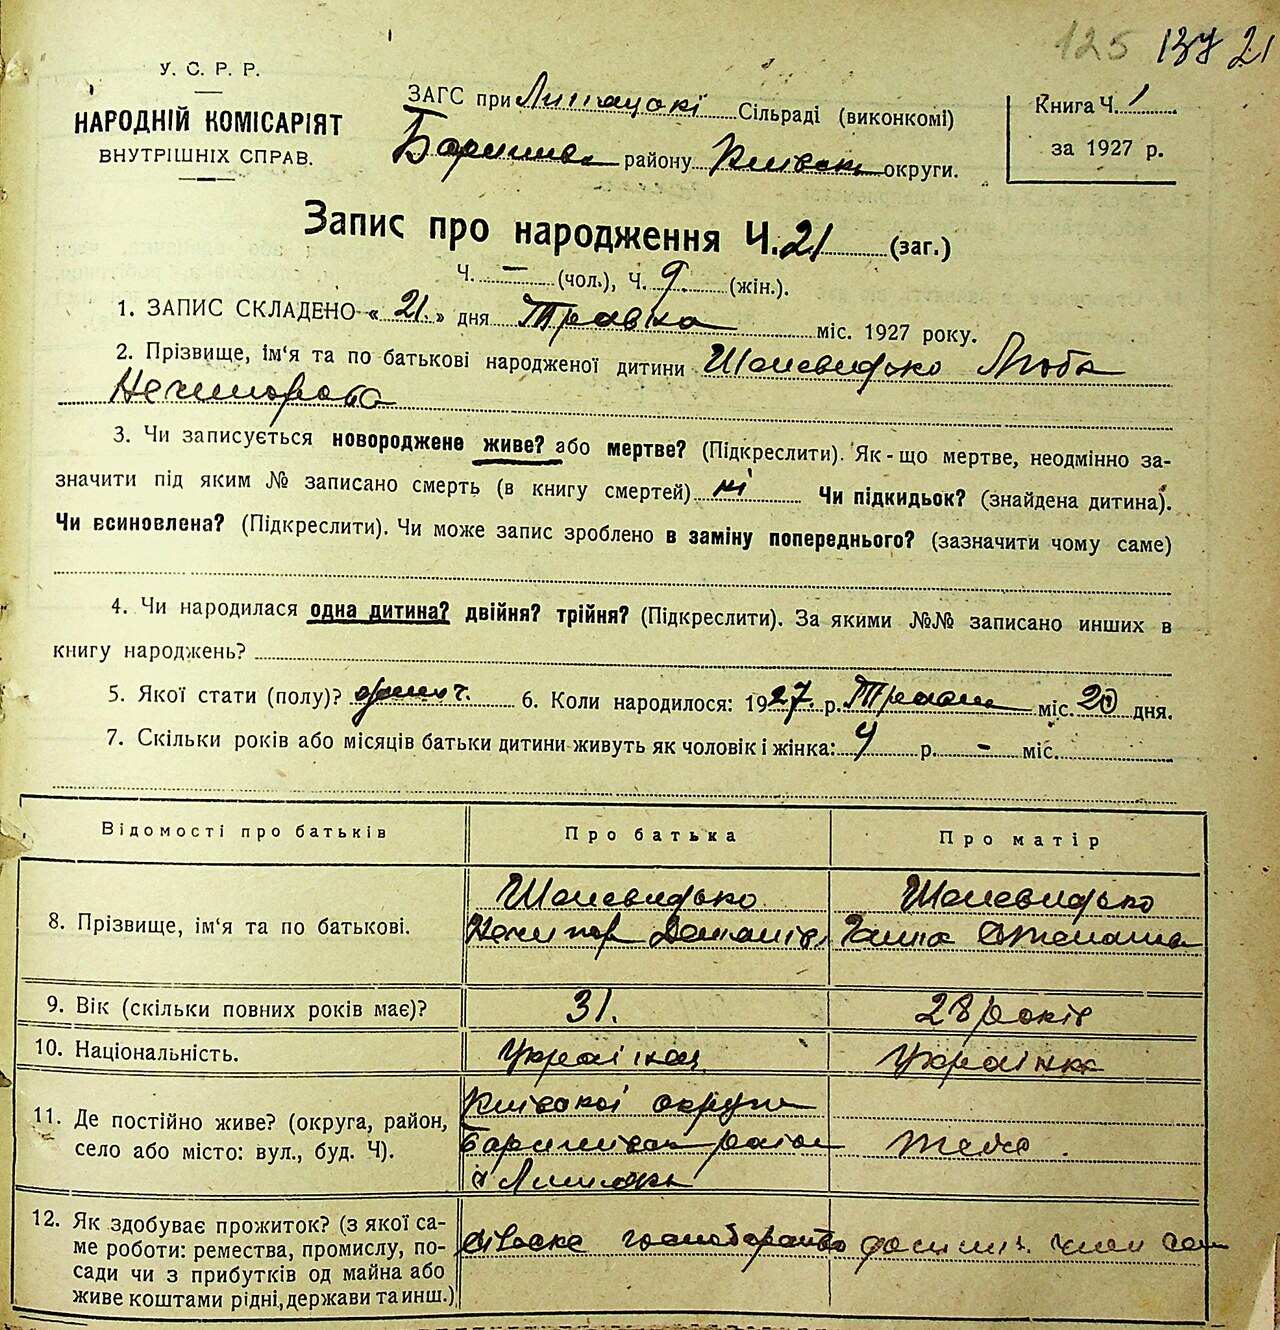 125 137 21
У. С. Р. Р.
НАРОДНІЙ КОМІСАРІЯТ
ВНУТРІШНІХ СПРАВ.
ЗАГС при Сільраді (виконкомі)
району округи.
Книга Ч. 1
за 1927 р.
Запис про народження Ч. 21 (заг.)
Ч. — (чол.), Ч. 9 (жін.).
1. ЗАПИС СКЛАДЕНО « 21 » дня Травня міс. 1927 року.
2. Прізвище, ім'я та по батькові народженої дитини Шолевидько Люба
Нечипорова
3. Чи записується новороджене живе? або мертве? (Підкреслити). Як-що мертве, неодмінно за-
значити під яким № записано смерть (в книгу смертей) ні Чи підкидьок? (знайдена дитина).
Чи всиновлена? (Підкреслити). Чи може запис зроблено в заміну попереднього? (зазначити чому саме)
4. Чи народилася одна дитина? двійня? трійня? (Підкреслити). За якими №№ записано инших в
книгу народжень?
5. Якої стати (полу)? 6. Коли народилося: 1927 р. міс. 20 дня.
7. Скільки років або місяців батьки дитини живуть як чоловік і жінка: 4 р. - міс.
Відомості про батьків Про батька Про матір
8. Прізвище, ім'я та по батькові.
Шолевидько Шолевидько
Нечипор Ганна
9. Вік (скільки повних років має)? 31. 28 років
10. Національність. Українец Українка
11. Де постійно живе? (округа, район,
село або місто: вул., буд. Ч).
Київської округи
район тоже.
12. Як здобуває прожиток? (з якої са-
ме роботи: ремества, промислу, по-
сади чи з прибутків од майна або
живе коштами рідні, держави та инш.)
сільске господарство